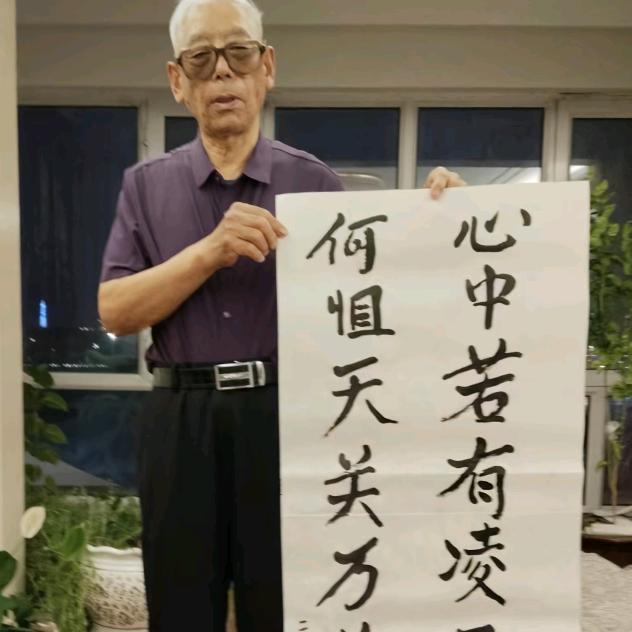 心中若有凌
何惧天关万